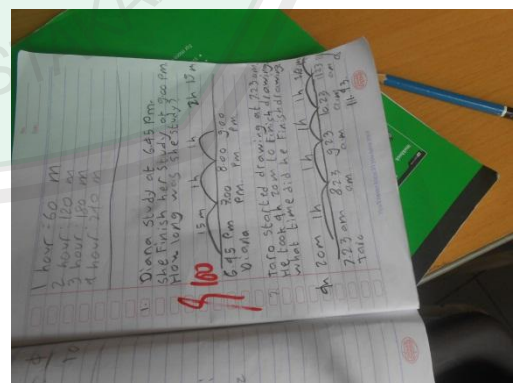 1 hour : 60 m
2 hour : 120 m
3 hour : 180 m
4 hour : 240 m
1. Diana study at 6.45 pm.
she finish her study at 9.00 pm
How long was she study?
15 m 1 h 1 h 2h 15 m
6.45 pm 7.00 pm 8.00 pm 9.00 pm
Diana
100
2. Toro started drawing at 7.23 am
He took 4h 20m to finish drawing
what time did he finish drawing
4h 20m 1h 1h 1h 1h 20m
7.23 am 8.23 am 9.23 am 10.23 am 11.23
11.43
Toro